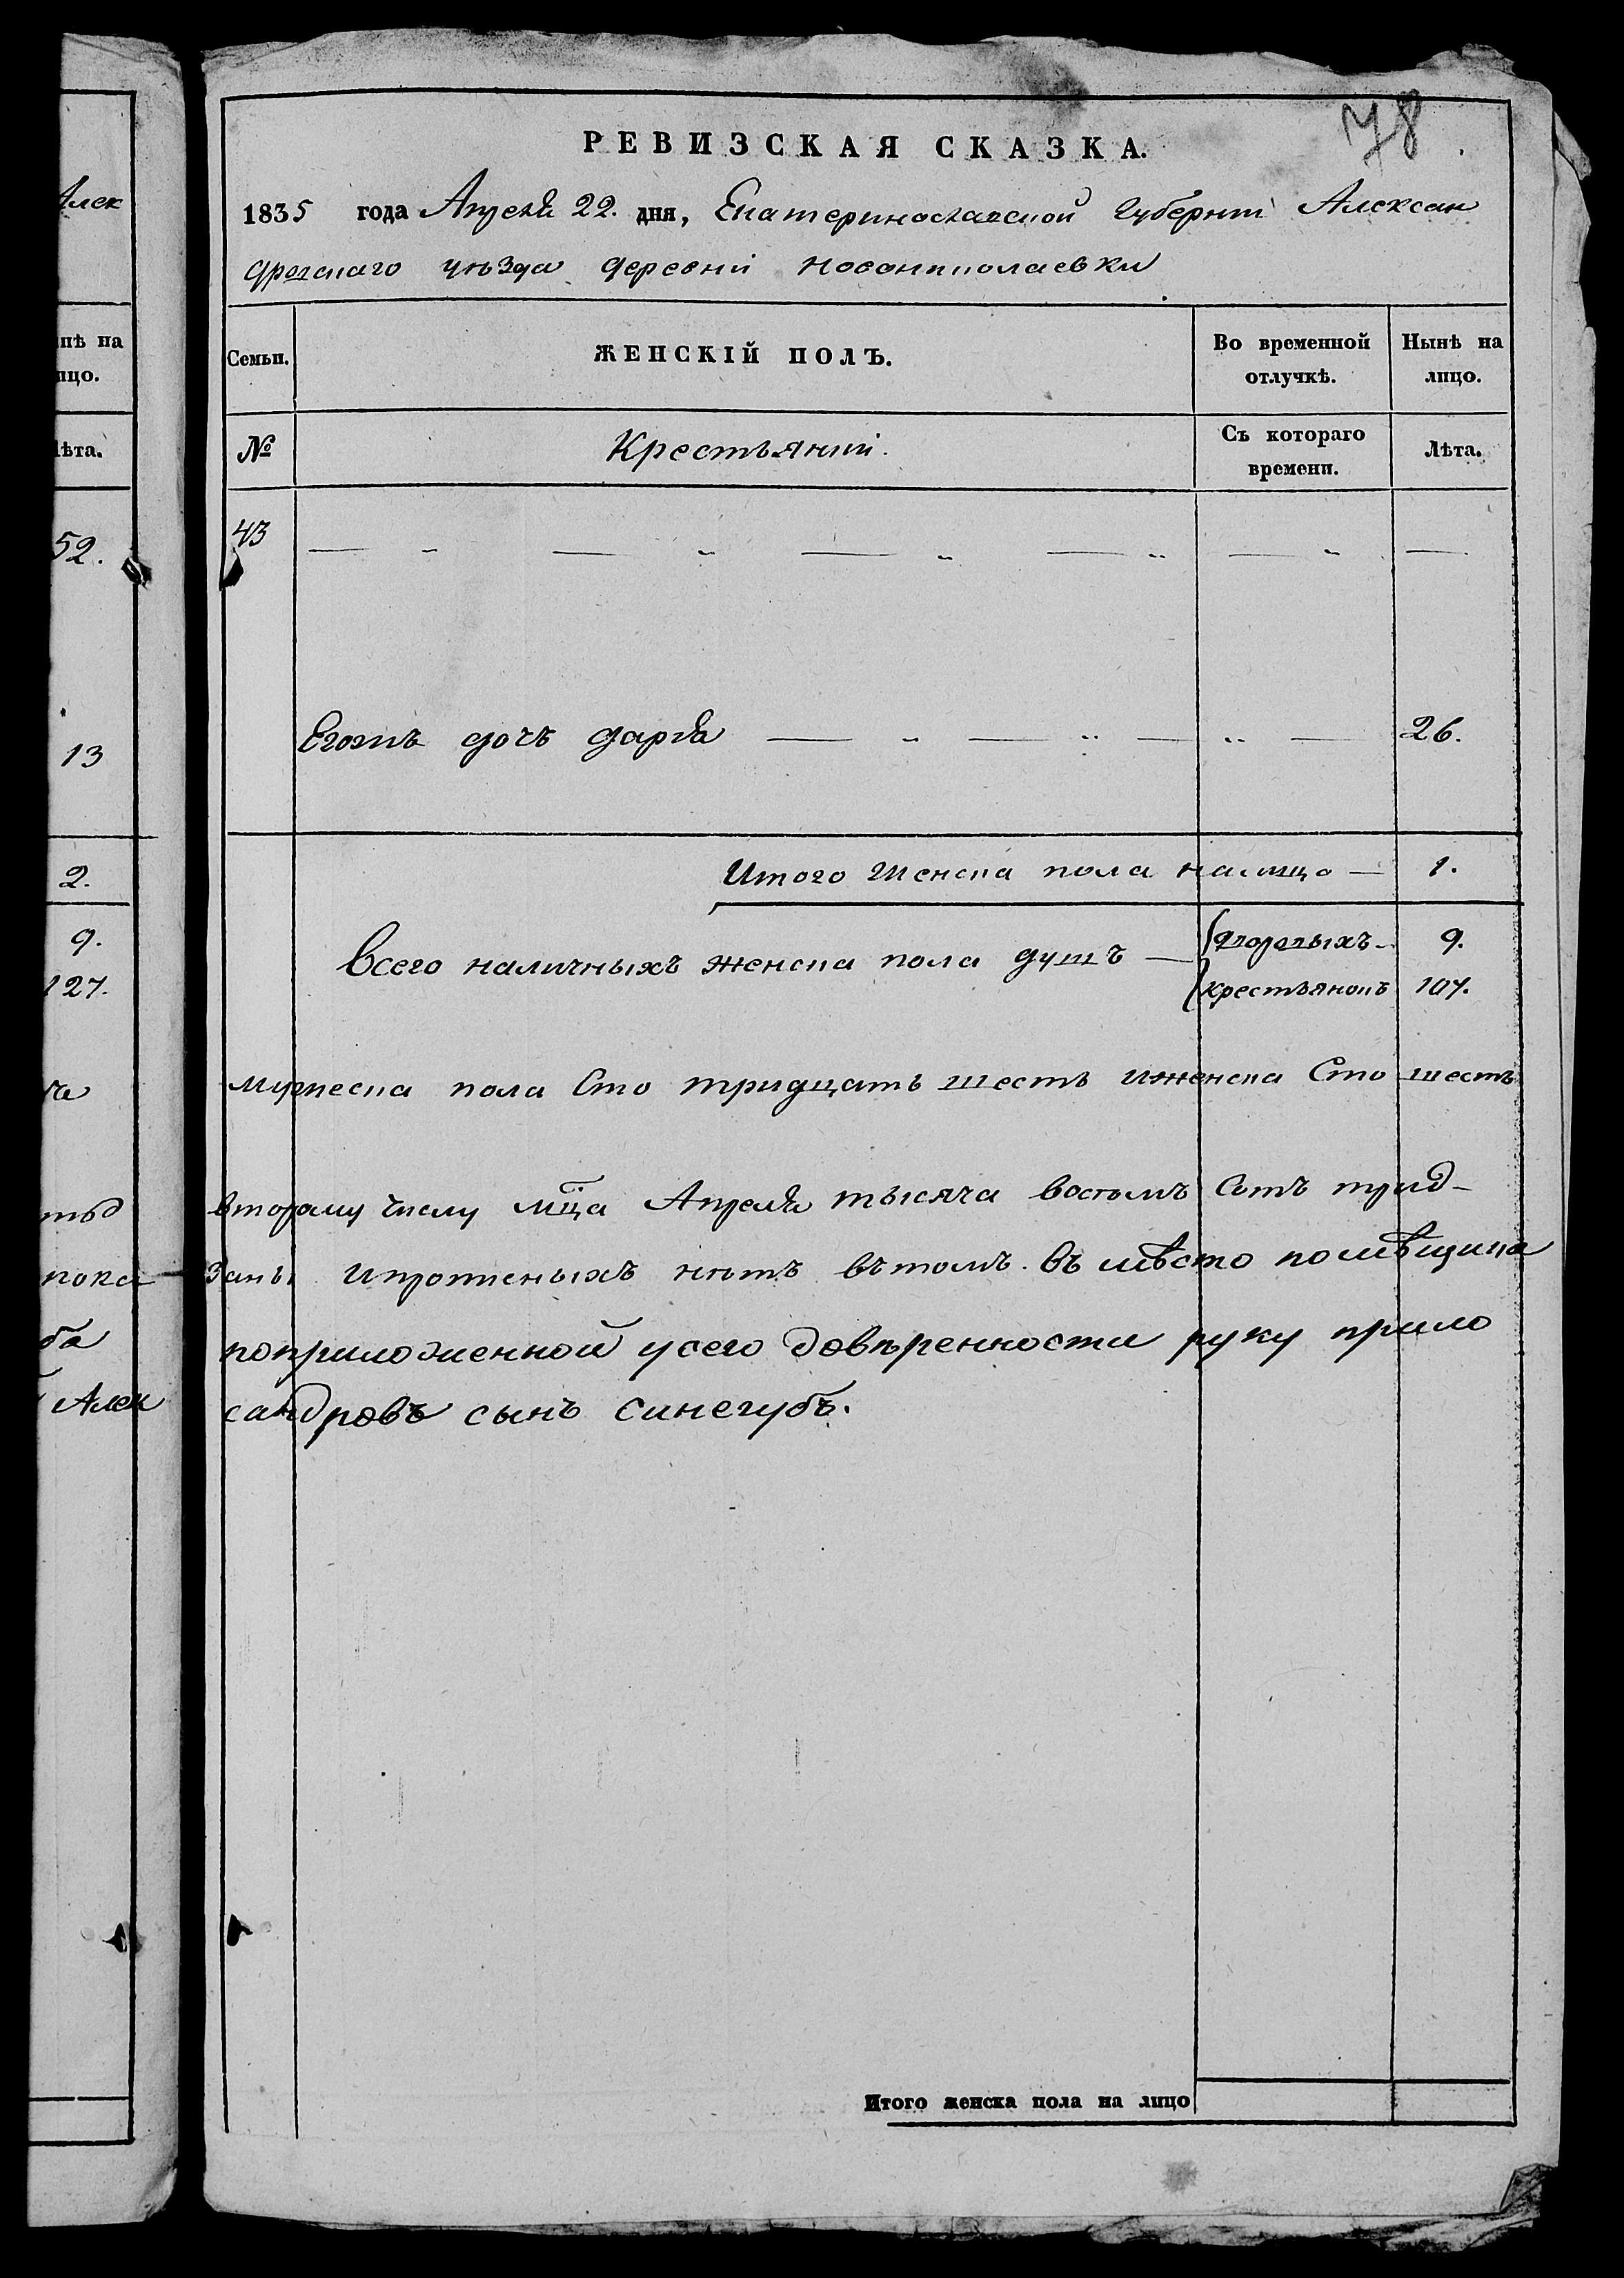 Алек
нѣ на
лцо.
лѣта.
52.
13
2.
9.
127.
ча
тьд
пока
ба
Алек
78
РЕВИЗСКАЯ СКАЗКА.
1835 года Апреля 22. дня, Екатеринославской губерніи Алексан
дровскаго уѣзда деревни Новониколаевки
Семьи. ЖЕНСКІЙ ПОЛЪ. Во временной отлучкѣ. Нынѣ на лицо.
№ Крестьянии. Съ котораго времени. Лѣта.
43
Егожъ дочь дарья 26.
Итого женска пола налицо — 1.
Всего наличныхъ женска пола душъ — дворовыхъ 9.
крестьянокъ 107.
мужеска пола Сто тридцать шесть иженска Сто шесть
второму числу мца Апреля тысяча восемъ Сотъ трид-
заны ипрописныхъ нѣтъ вътомъ. въ мѣсто помѣщика
поприложенной усего довѣренности руку прило
сандровъ сынъ синегубъ.
Итого женска пола на лицо